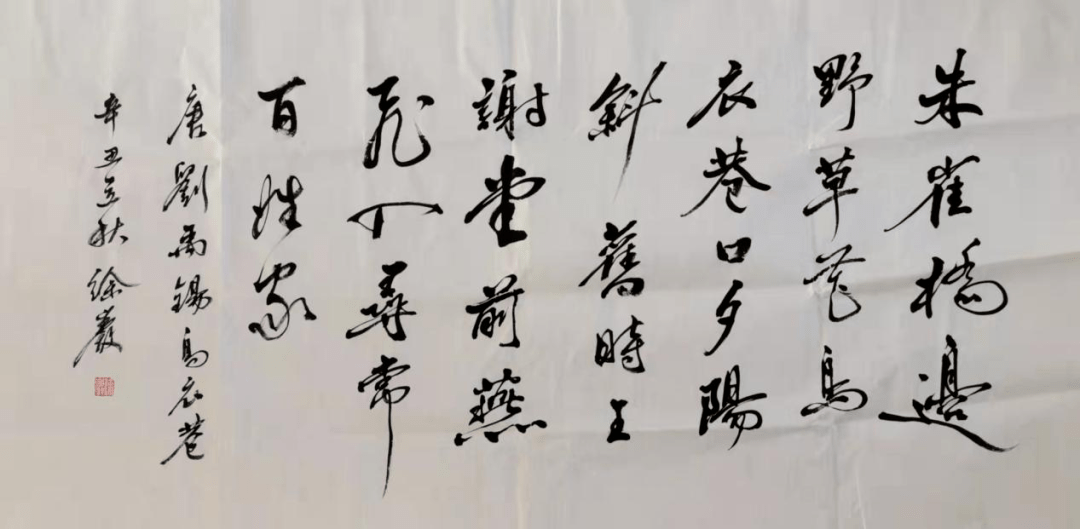 朱雀橋邊
野草花烏
衣巷口夕陽
斜舊時王
謝堂前燕
飛入尋常
百姓家
唐劉禹錫烏衣巷
辛丑立秋徐嚴